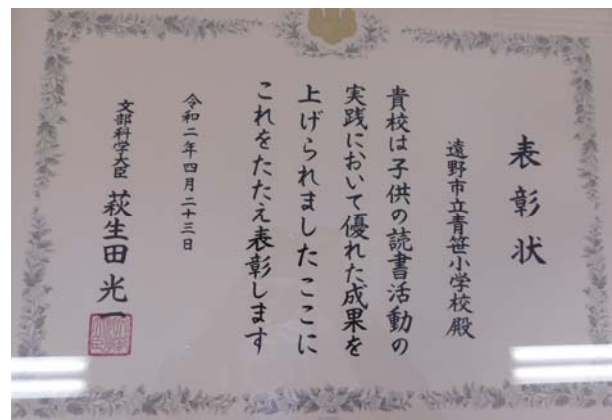 表彰状
遠野市立青笹小学校殿
貴校は子供の読書活動の
実践において優れた成果を
上げられましたここに
これをたたえ表彰します
令和二年四月二十三日
文部科学大臣 萩生田光一